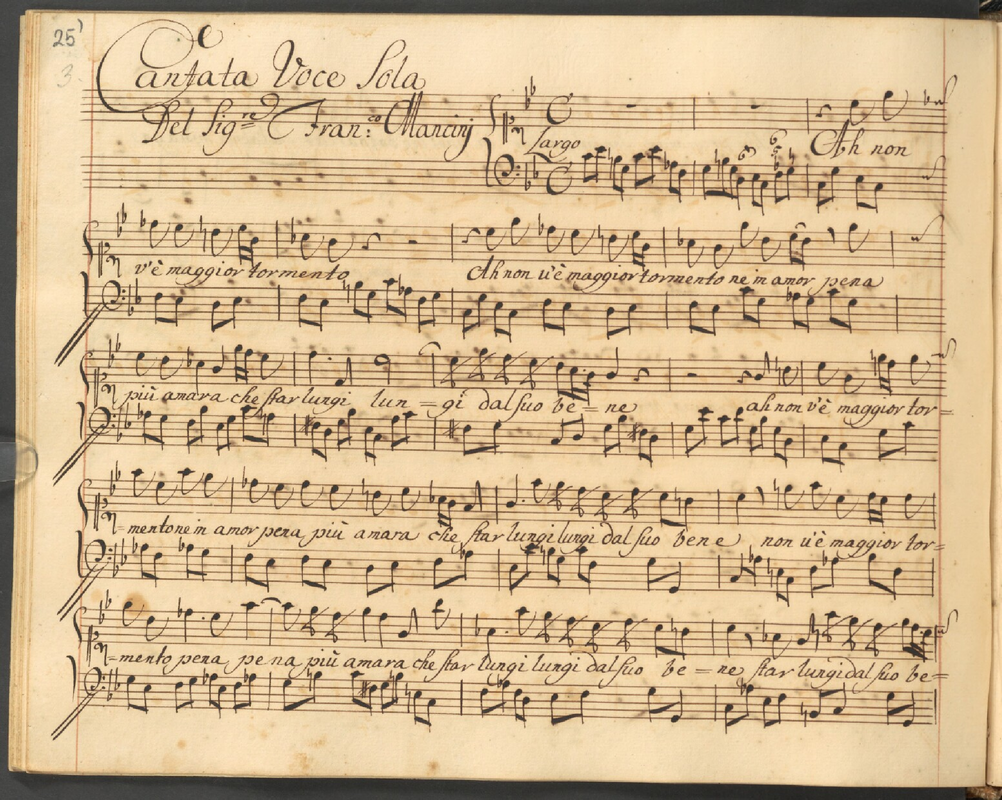 25
3
Cantata Voce Sola
Del Sig.re Fran.co Mancinj
Largo
Ah non
v'è maggior tormento Ah non v'è maggior tormento ne in amor pena
più amara che star lungi lun=gi dal suo be=ne ah non v'è maggior tor=
=mento ne in amor pena più amara che star lungi lungi dal suo bene non v'è maggior tor=
=mento pena pena più amara che star lungi lungi dal suo be=ne star lungi dal suo be=